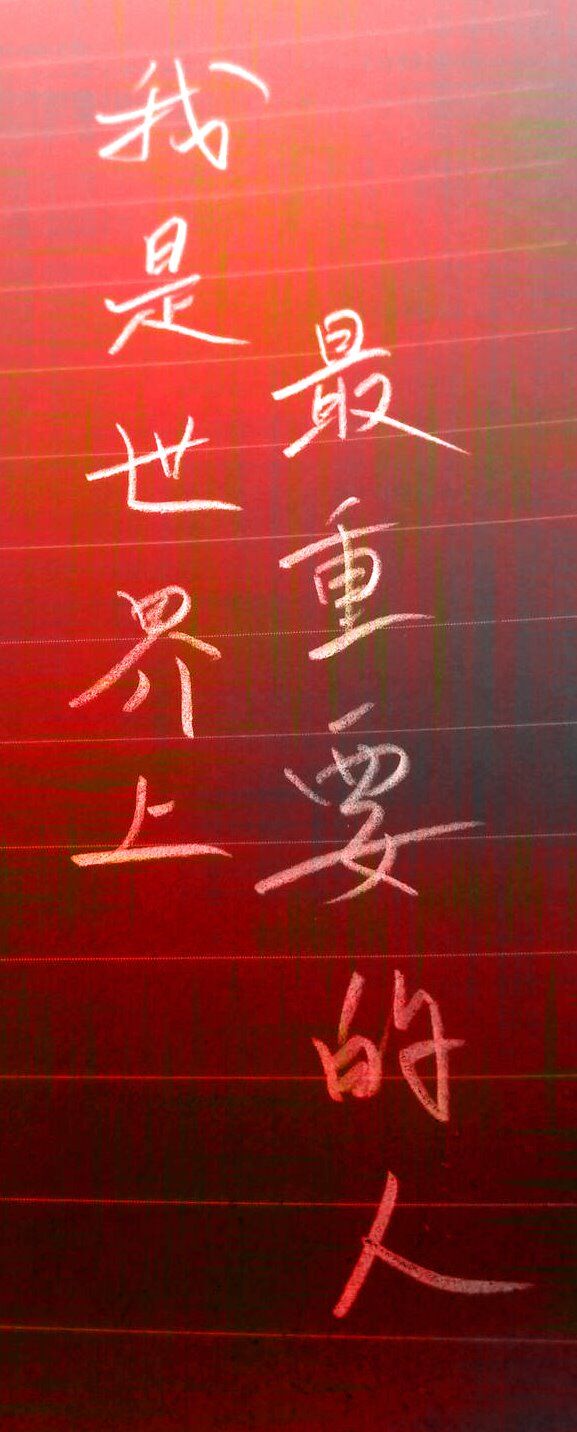 我是世界上
最重要的人